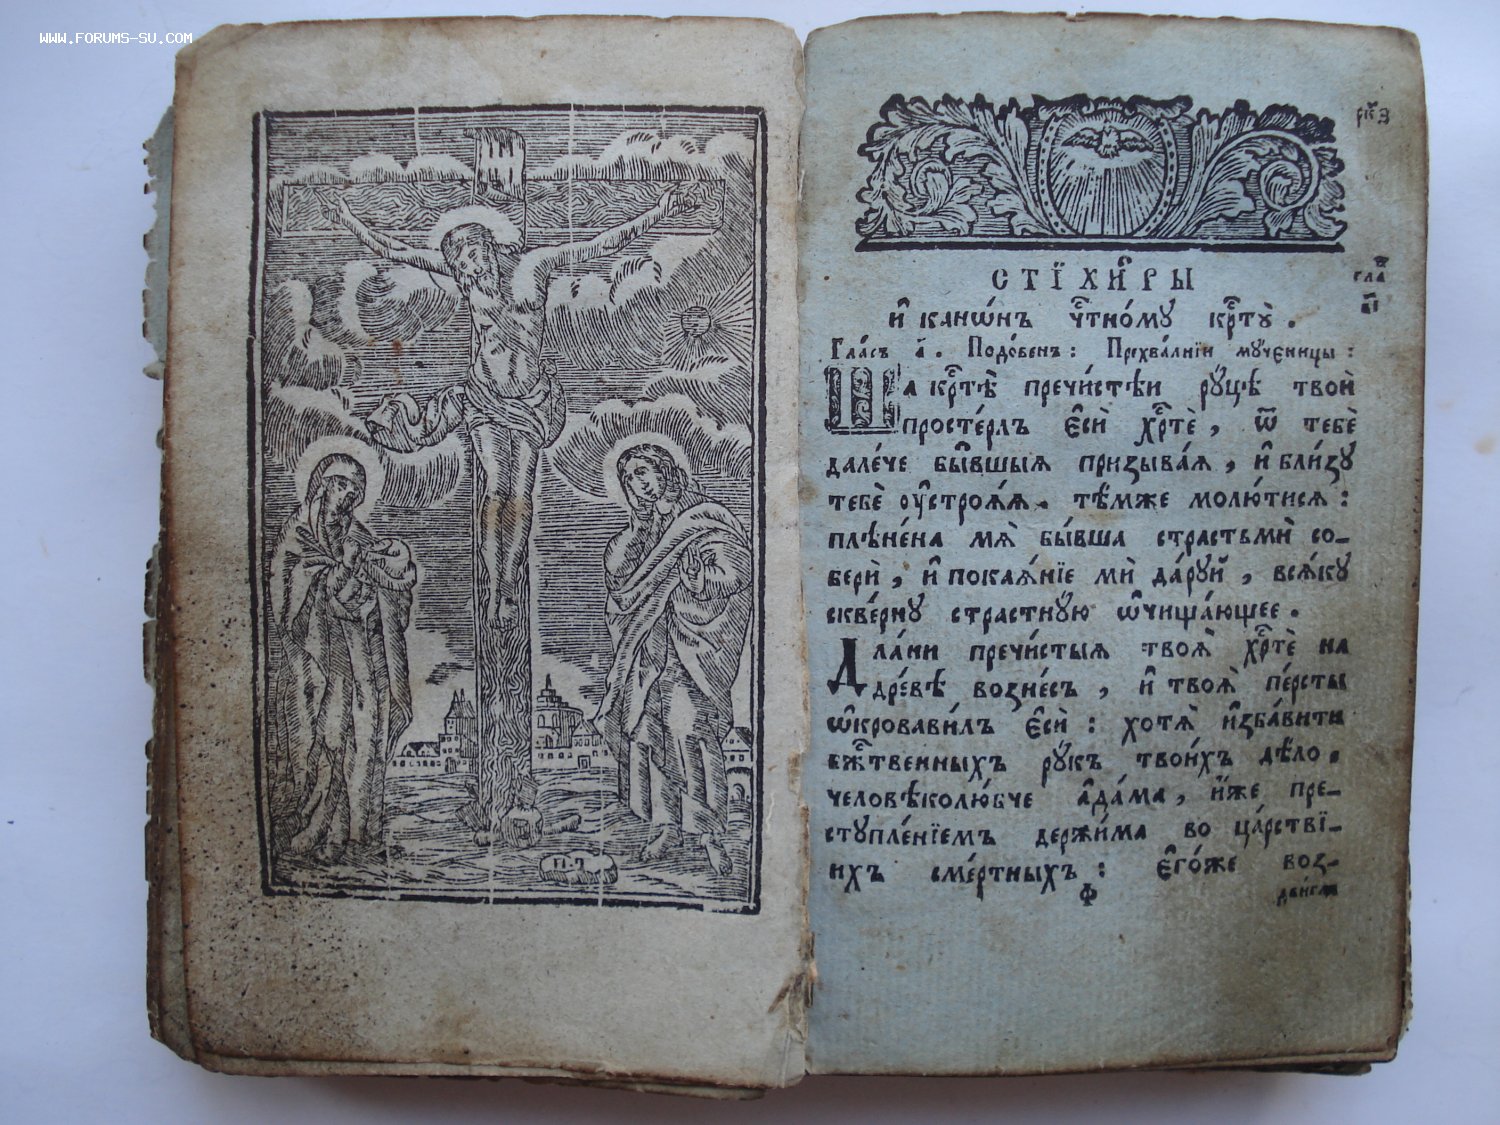 WWW.FORUMS-SU.COM
П·Ч
рк҃з
СТЇХИ̑РЫ
гла̀в
в҃і
и҆ канѡ́нъ чⷭ҇тно́му крⷭ҇ту̀.
Гла́съ а҃. Подо́бенъ: Прехва́лнїи мꙋ́ченицы:
На крⷭ҇тѣ̀ пречи́стѣи рꙋ́цѣ твоѝ
простерлъ є҆сѝ хрⷭ҇тѐ, ѿ тебѐ
дале́че бы̑вшыѧ призыва́ѧ, и҆ бли́зꙋ
тебѐ ᲂу҆строѧ́ѧ. тѣ́мже молю́тисѧ:
плѣне́на мѧ̀ бы́вша страстьмѝ со-
берѝ, и҆ покаѧ́нїе мѝ да́рꙋй, всѧ́кꙋ
скве́рнꙋ страстнꙋю ѡ҆чища́ющее.
Дла́ни пречи́стыѧ твоѧ̀ хрⷭ҇тѐ на
дре́вѣ возне́съ, и҆ твоѧ̀ пе́рсты
ѡ҆кровави́лъ є҆сѝ: хотѧ̀ и҆зба́вити
бжⷭ҇твенныхъ рꙋ́къ твои́хъ дѣ́ло.
человѣколю́бче а҆да́ма, и҆́же пре-
стꙋпле́нїемъ держи́ма во ца́рствї-
ихъ сме́ртныхъ: є҆го́же воз-
Ф
дви́глъ